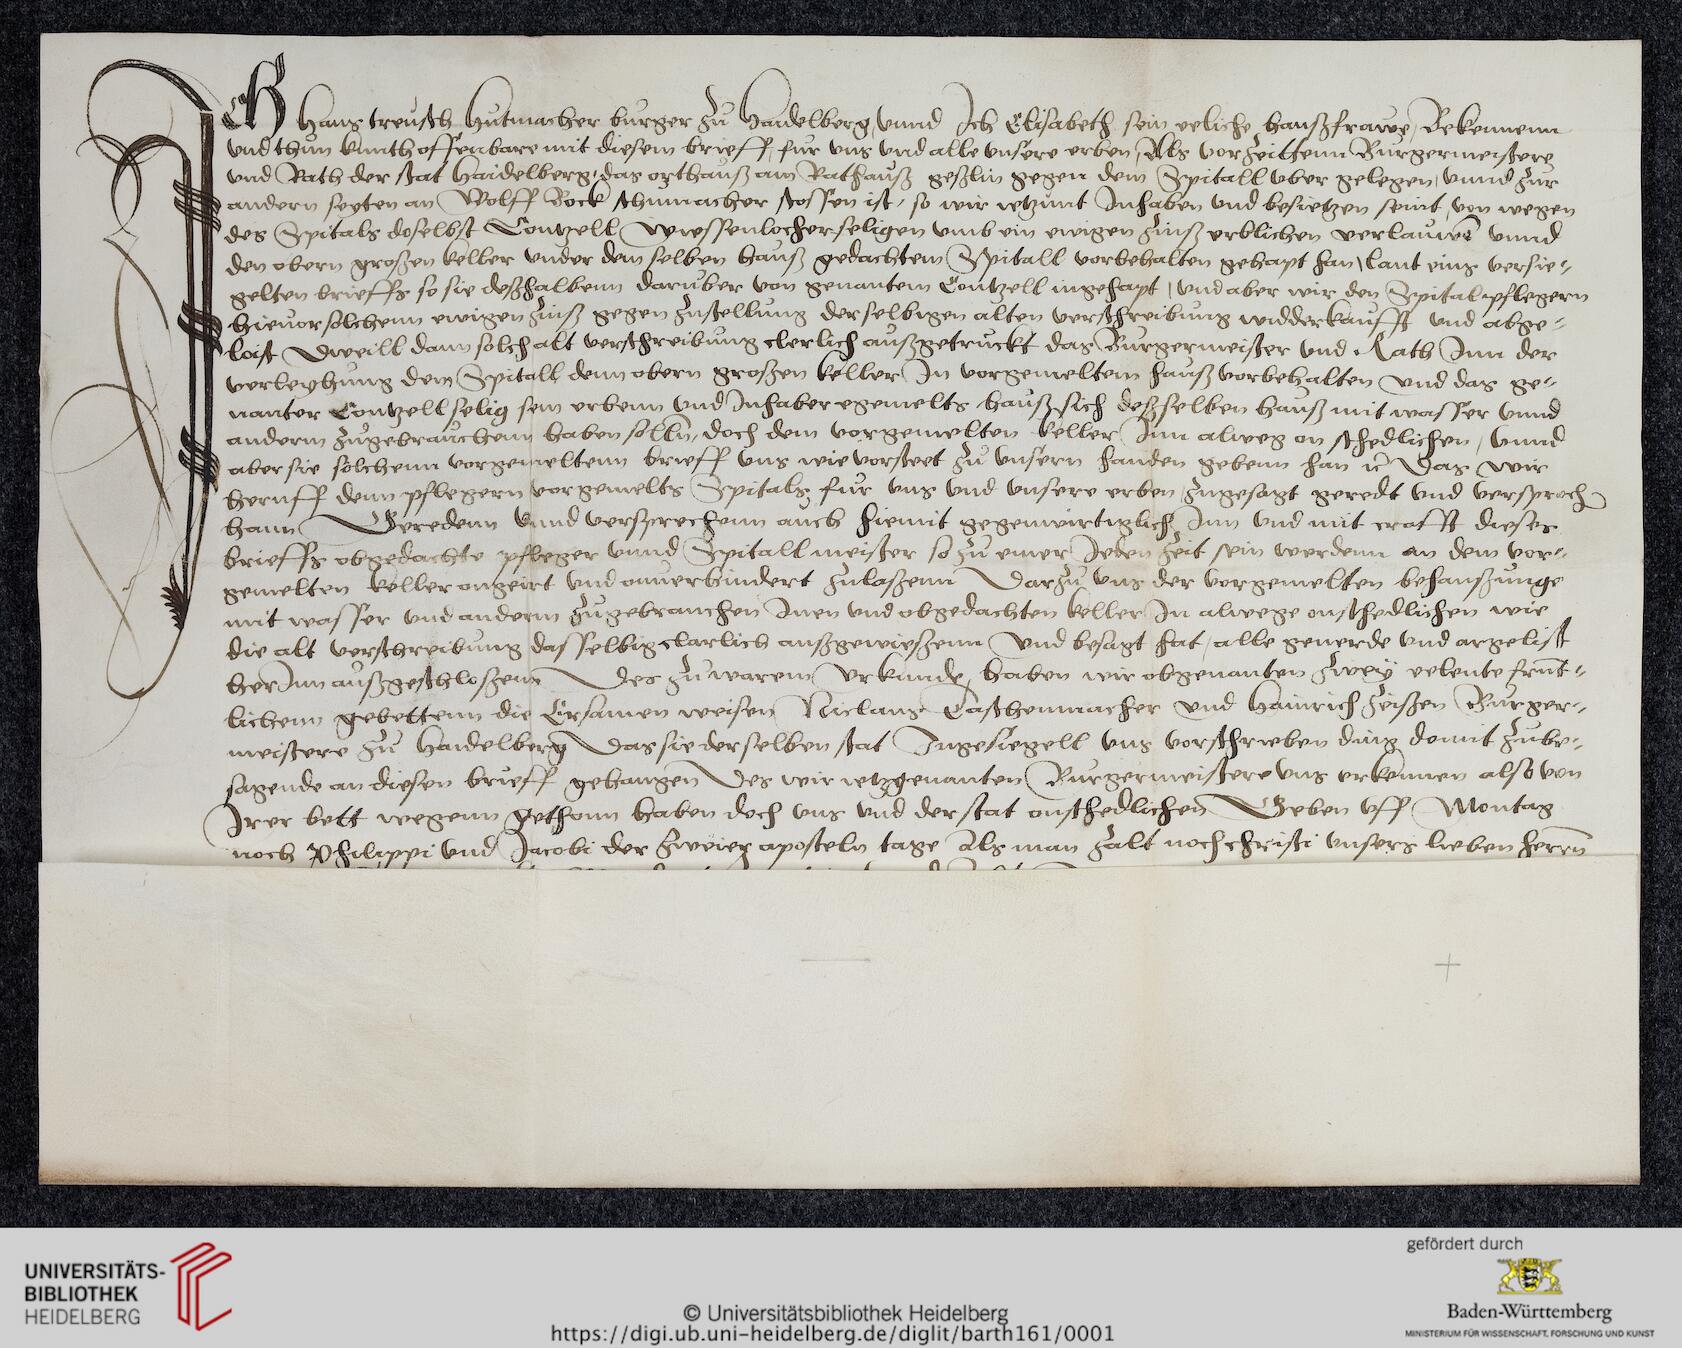 ICh Hans treusch Hutmacher burger zu Haidelberg, vnnd Ich Elisabeth sein eeliche haußfrawe, Bekennenn
vnd thun kunth offenbare mit diesem brieff, fur vns vnd alle vnsere erben, Als vorzeittenn Burgermeistere
vnd Rath der stat Haidelberg, das orthauß am Rathauß geßlin gegen dem Spitall vber gelegen, vnnd zur
andern seyten an Wolff Bock schumacher stossen ist, so wir ietzunt Inhaben vnd besietzen seint, von wegen
des Spitals doselbst Contzell Wyssenlocher seligen vmb ein ewigen zinß erblichen verlauwē vnnd
den obern großen keller vnder dem selben hauß gedachtem Spitall vorbehalten gehapt han, laut eins versie-
gelten brieffs so sie deßhalbenn daruber von genantem Contzell ingehapt, vnd aber wir den Spitalpflegern
hieuor solchenn ewigen zinß gegen zustellung derselbigen alten verschreibung widderkaufft vnd abge-
loist Dweill dann solch alt verschreibung clerlich außgetruckt das Burgermeister vnd Rath Inn der
verleyhung dem Spitall denn obern großen keller In vorgemeltem hauß vorbehalten vnd das ge-
nanter Contzell selig sein erbenn vnd Inhaber egemelts hauß sich deßselben hauß mit wasser vnnd
anderm zugebrauchenn haben solln, doch dem vorgemelten keller Inn alweg on schedlichen, vnnd
aber sie solchenn vorgemeltenn brieff vns wie vorsteet zu vnsern handen gebenn han ꝛc Das wir
heruff denn pflegern vorgemelts Spitals fur vns vnd vnsere erben, zugesagt geredt vnd versproch
hann Geredenn vnnd versprechenn auch hiemit gegenwirtiglich Inn vnd mit crafft dieses
brieffs obgedachte pfleger vnnd Spitallmeister so zu einer Jeden zeit sein werdenn an dem vor-
gemelten keller ongeirt vnd onuerhindert zulaßenn Darzu vns der vorgemelten behaußunge
mit wasser vnd anderm zugebrauchen Inen vnd obgedachten keller In alwege onschedlichen wie
die alt verschreibung dasselbig clarlich außgewießenn vnd besagt hat, alle geuerde vnd argelist
herInn außgeschloßenn Des zu warem Urkunde, haben wir obgenanten zwey eelente frūt-
lichenn gebettenn die Ersamen weisen Niclaus Taschenmacher vnd Hainrich zeißen Burger-
meistere zu Haidelberg Das sie derselben stat Ingesiegell vns vorschrieben ding domit zube-
sagende an diesen brieff gehangen Des wir ietzgenanten Burgermeistere vns erkennen also von
Irer bett wegenn gethonn haben doch vns vnd der stat onschedlichen Geben vff Montag
noch Philippi vnd Jacobi der zweier aposteln tage Als man zalt noch christi vnsers lieben herrn̄
UNIVERSITÄTS-
BIBLIOTHEK
HEIDELBERG
© Universitätsbibliothek Heidelberg
https://digi.ub.uni-heidelberg.de/diglit/barth161/0001
gefördert durch
Baden-Württemberg
MINISTERIUM FÜR WISSENSCHAFT, FORSCHUNG UND KUNST